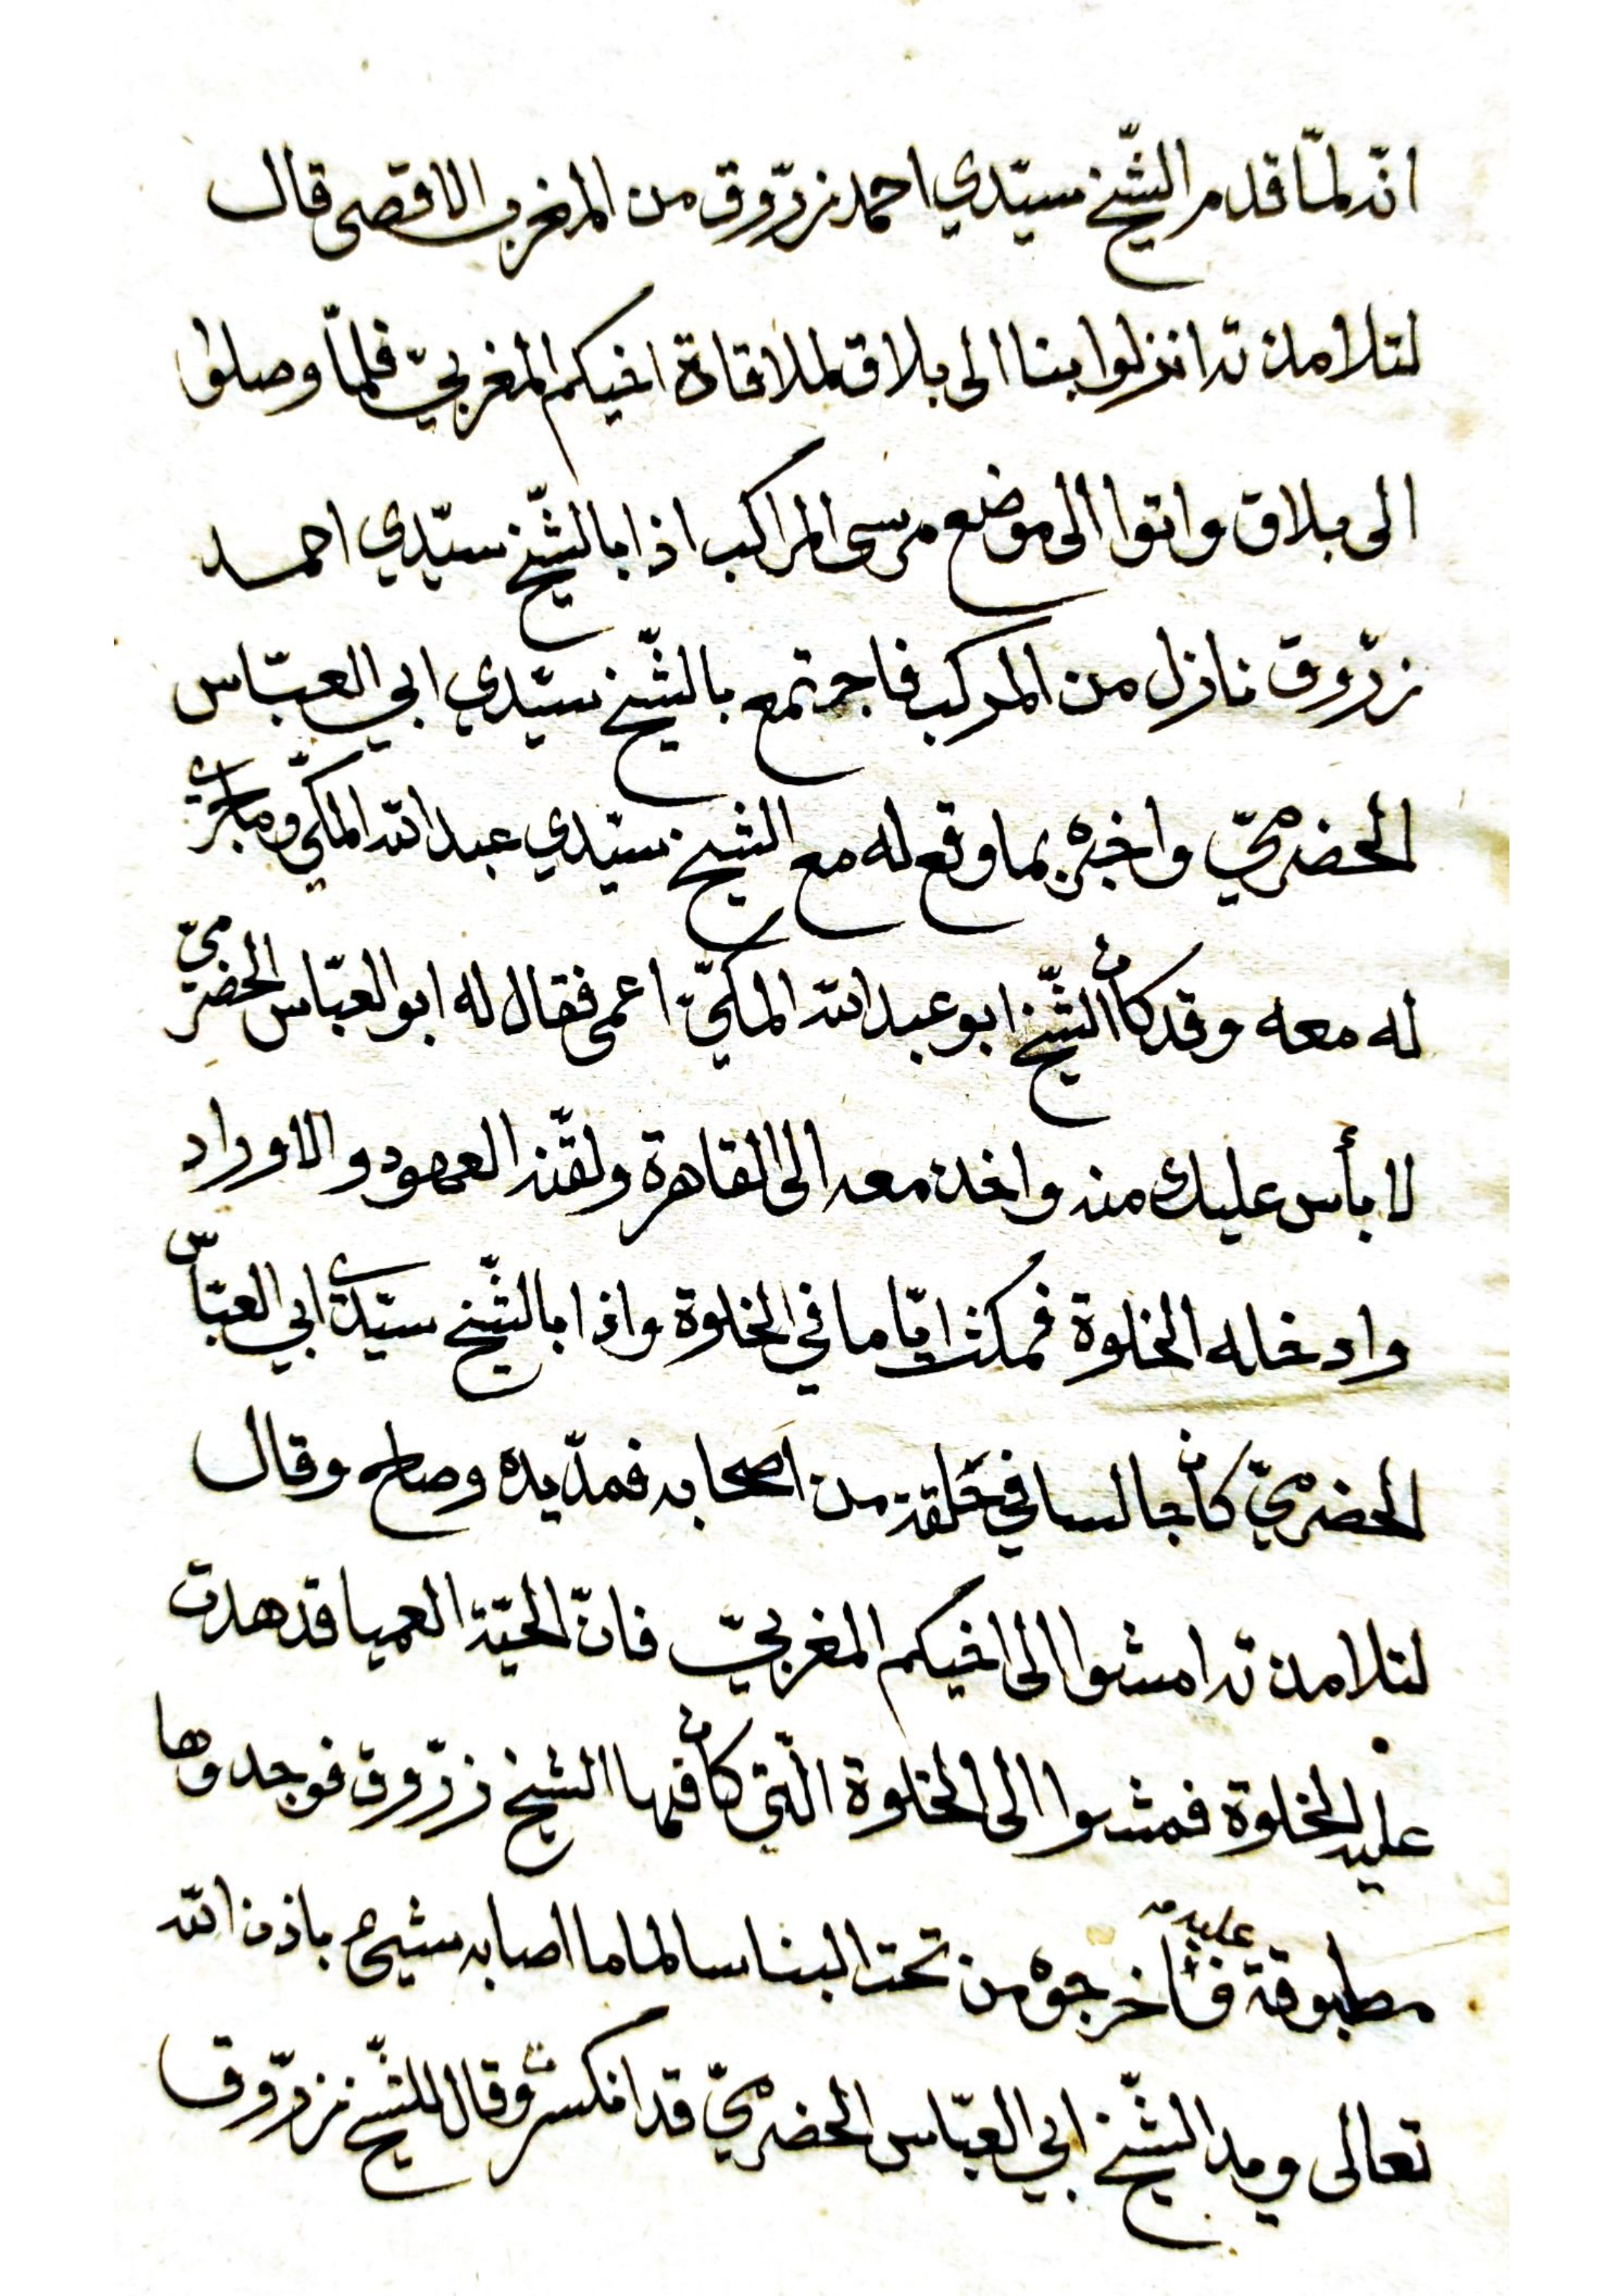 انّه لمّا قدم الشّيخ سيّدي احمد زرّوق من المغرب الاقصى قال
لتلامذته انزلوا بنا الى بلاق لملاقاة اخيكم المغربيّ فلمّا وصلوا
الى بلاق واتوا الى موضع مرسى المراكب اذا بالشّيخ سيّدي احمد
زرّوق نازل من المركب فاجتمع بالشّيخ سيّدي ابي العبّاس
الحضرميّ واخبره بما وقع له مع الشيخ سيّدي عبد الله المكّي وما جرى
له معه وقد كان الشّيخ ابو عبد الله المكّيّ اعمى فقال له ابو العبّاس الحضرميّ
لا بأس عليك منه واخذه معه الى القاهرة ولقّنه العهود والاوراد
وادخله الخلوة فمكث ايّاما في الخلوة واذا بالشّيخ سيّدي ابي العبّاس
الحضرميّ كان جالسا في حَلقة من اَصحابه فمدّ يده وصاح وقال
لتلامذته امشوا الى اخيكم المغربيّ فانّ الحيّة العميا قد هدت
عليه الخلوة فمشوا الى الخلوة الّتي كان فيها الشيخ زرّوق فوجدوها
مطبوقة عليه فاخرجوه من تحت البنا سالما ما اصابه شيء باذن الله
تعالى ويد الشّيخ ابي العبّاس الحضرميّ قد انكسرت وقال للشّيخ زرّوق